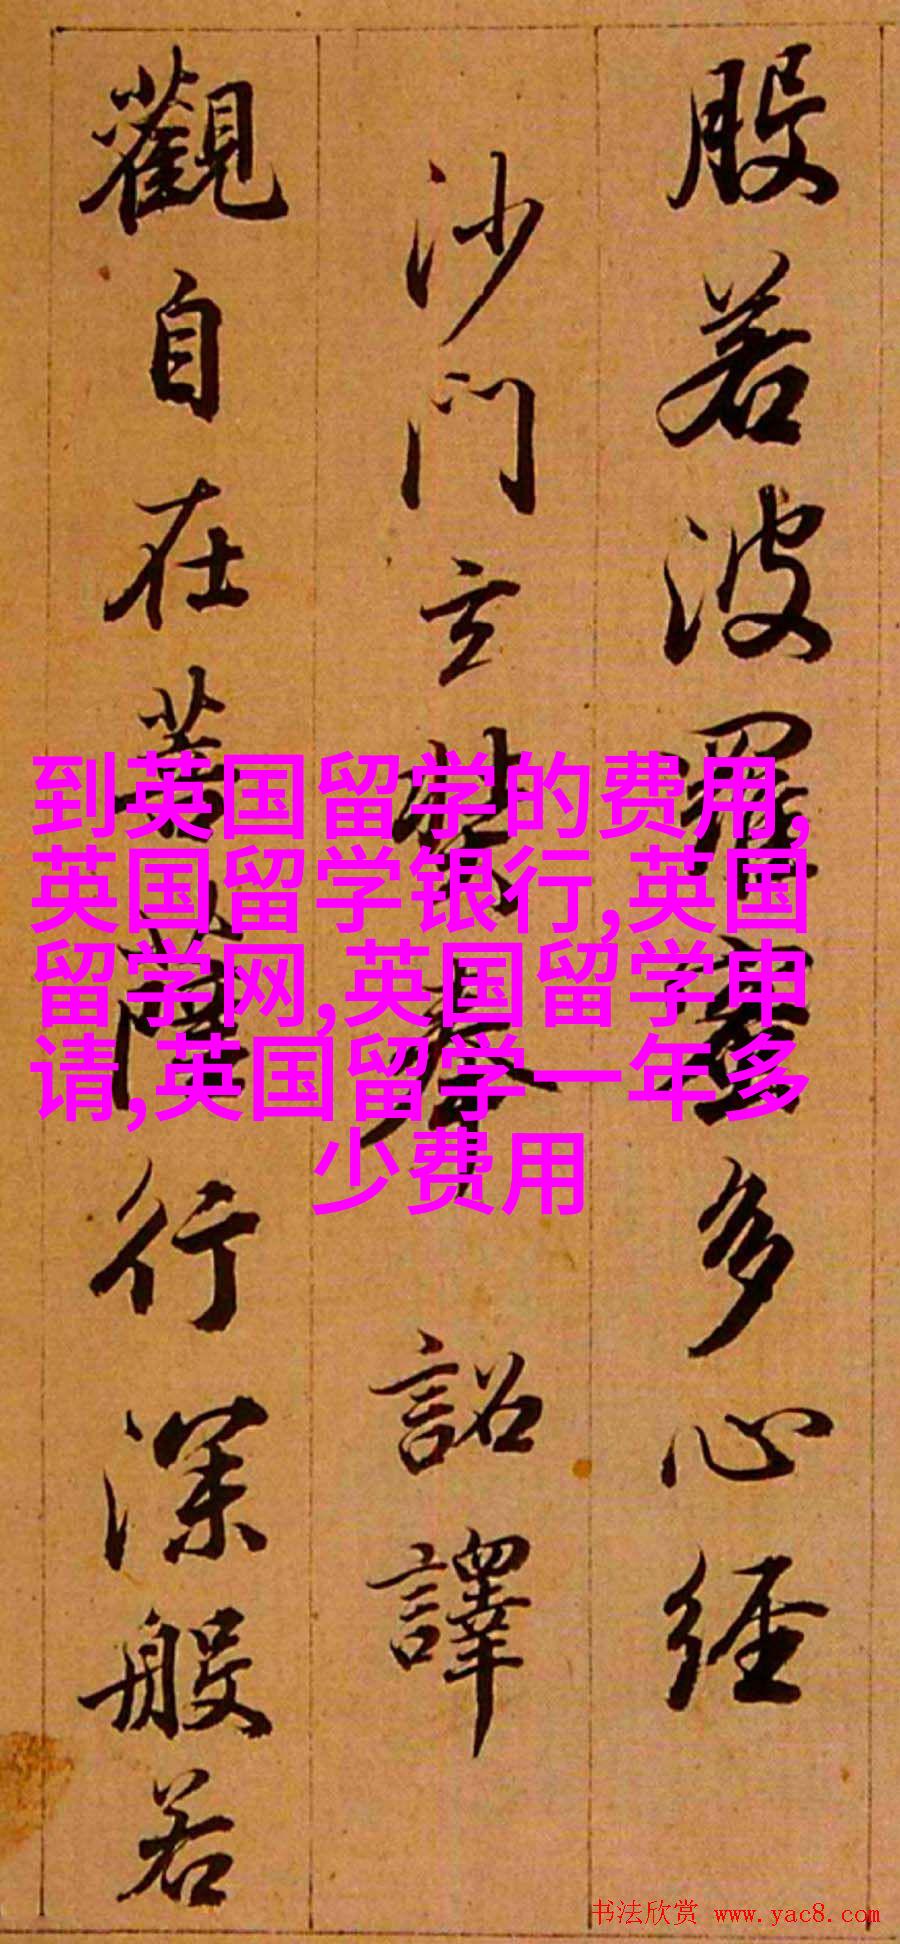 般若波羅蜜多心經
沙門玄奘奉 詔譯
觀自在菩薩行深般若
到英国留学的费用,
英国留学银行,英国
留学网,英国留学申
请,英国留学一年多
少费用
书法欣赏 www.yac8.com